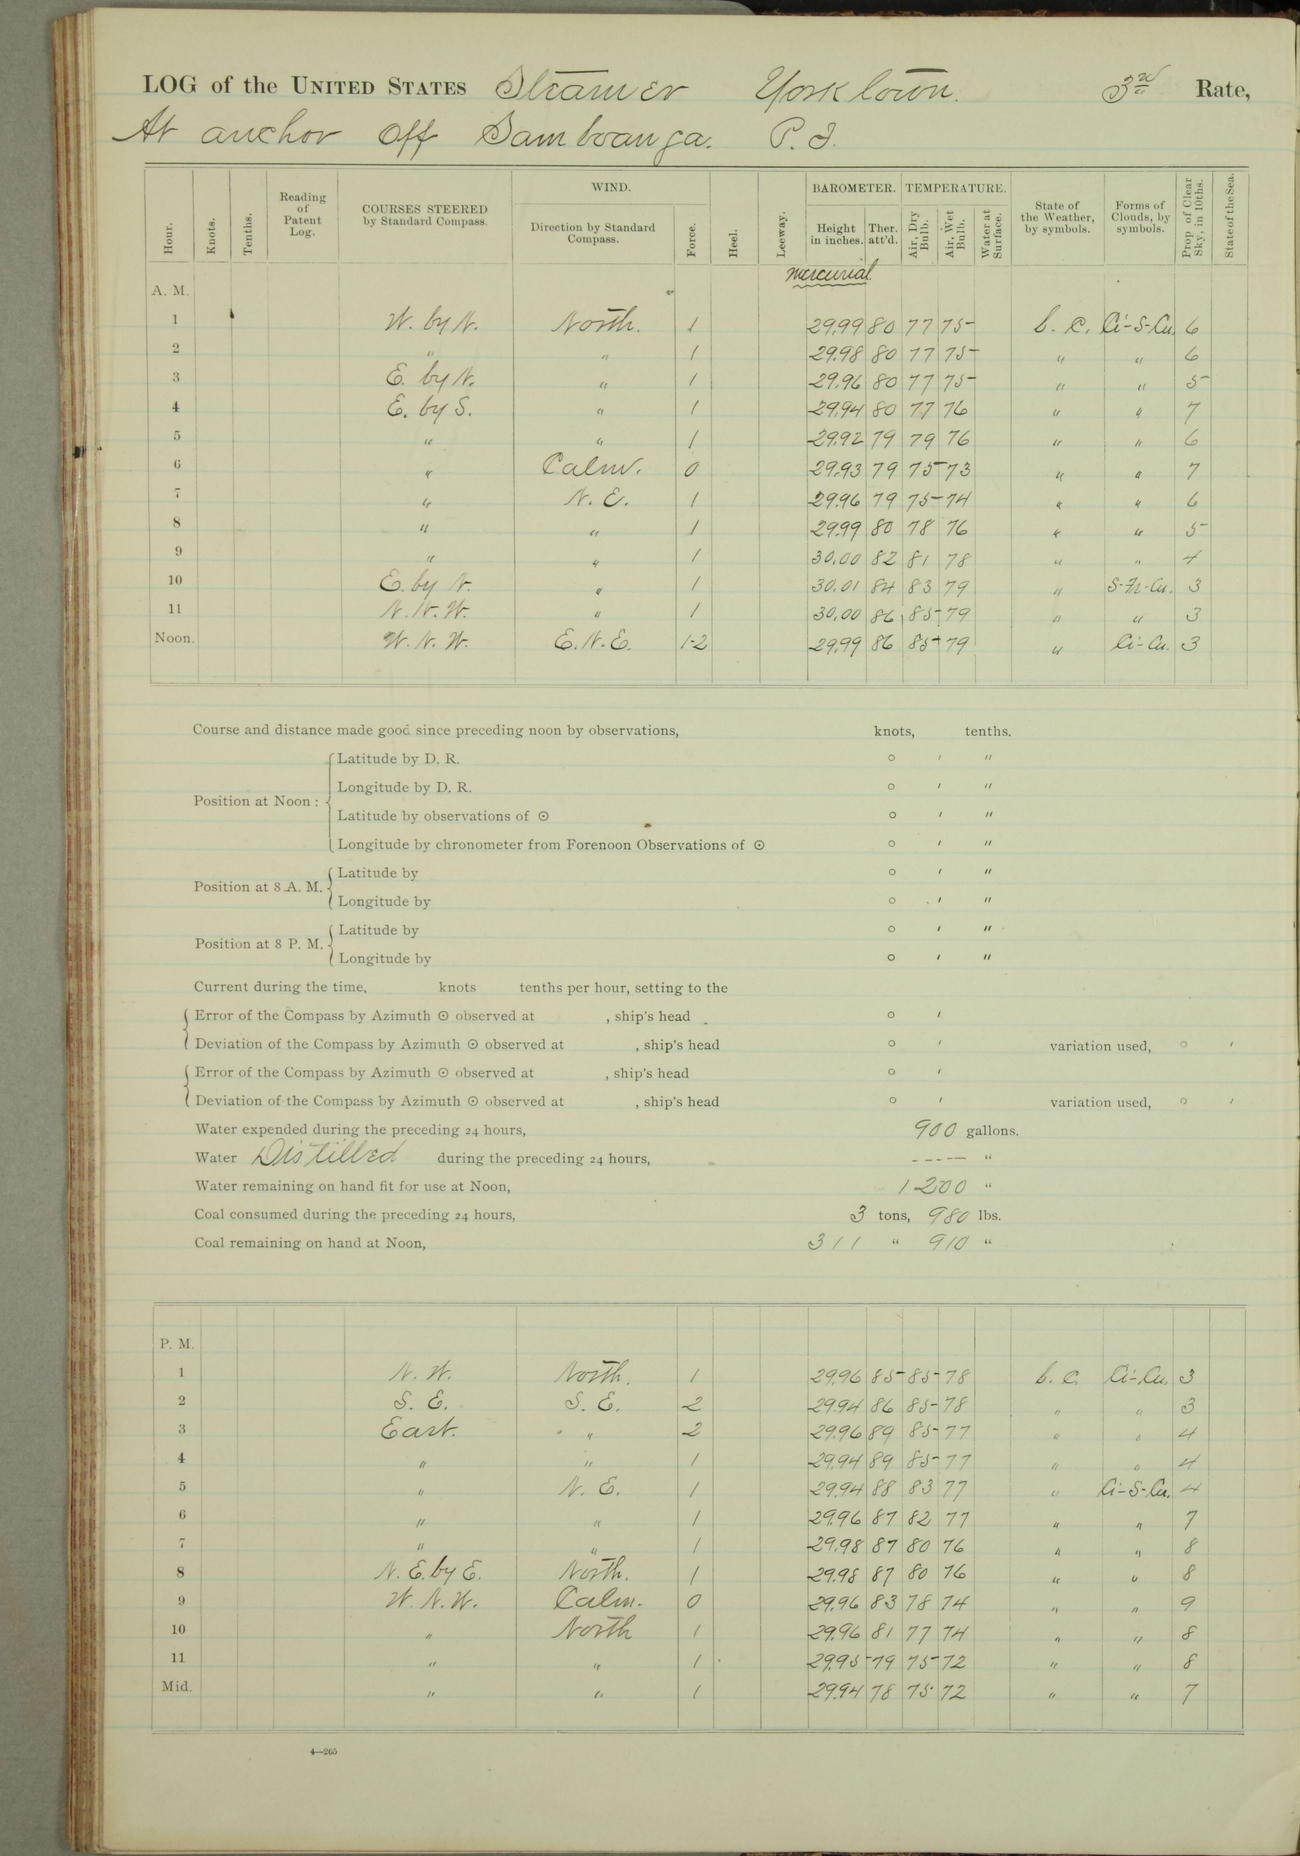 LOG of the UNITED STATES Steamer Yorktown. 3rd Rate,
At anchor off Samboanga. P. I.
Hour. Knots. Tenths. Reading of Patent Log. COURSES STEERED by Standard Compass. WIND. Direction by Standard Compass. Force. Heel. Leeway. BAROMETER. Height in inches. Ther. att'd. TEMPERATURE. Air, Dry Bulb. Air, Wet Bulb. Water at Surface. State of the Weather, by symbols. Forms of Clouds, by symbols. Prop. of Clear Sky, in 10ths. State of the Sea.
mercurial
A. M.
1 W. by N. North. 1 29.99 80 77 75 b. c. Ci-S-Cu. 6
2 " " 1 29.98 80 77 75 " " 6
3 E. by N. " 1 29.96 80 77 75 " " 5
4 E. by S. " 1 29.94 80 77 76 " " 7
5 " " 1 29.92 79 79 76 " " 6
6 " Calm. 0 29.93 79 75 73 " " 7
7 " N. E. 1 29.96 79 75 74 " " 6
8 " " 1 29.99 80 78 76 " " 5
9 " " 1 30.00 82 81 78 " " 4
10 E. by N. " 1 30.01 84 83 79 " S-Fr-Cu. 3
11 N. N. W. " 1 30.00 86 85 79 " " 3
Noon. W. N. W. E. N. E. 1-2 29.99 86 85 79 " Ci-Cu. 3
Course and distance made good since preceding noon by observations, knots, tenths.
Position at Noon:
Latitude by D. R. ° ' "
Longitude by D. R. ° ' "
Latitude by observations of ⊙ ° ' "
Longitude by chronometer from Forenoon Observations of ⊙ ° ' "
Position at 8 A. M.
Latitude by ° ' "
Longitude by ° ' "
Position at 8 P. M.
Latitude by ° ' "
Longitude by ° ' "
Current during the time, knots tenths per hour, setting to the
Error of the Compass by Azimuth ⊙ observed at , ship's head ° '
Deviation of the Compass by Azimuth ⊙ observed at , ship's head ° ' variation used, ° '
Error of the Compass by Azimuth ⊙ observed at , ship's head ° '
Deviation of the Compass by Azimuth ⊙ observed at , ship's head ° ' variation used, ° '
Water expended during the preceding 24 hours, 900 gallons.
Water Distilled during the preceding 24 hours, ---- "
Water remaining on hand fit for use at Noon, 1200 "
Coal consumed during the preceding 24 hours, 3 tons, 980 lbs.
Coal remaining on hand at Noon, 311 " 910 "
P. M.
1 N. W. North. 1 29.96 85 85 78 b. c. Ci-Cu. 3
2 S. E. S. E. 2 29.94 86 85 78 " " 3
3 East. " 2 29.96 89 85 77 " " 4
4 " " 1 29.94 89 85 77 " " 4
5 " N. E. 1 29.94 88 83 77 " Ci-S-Cu. 4
6 " " 1 29.96 87 82 77 " " 7
7 " " 1 29.98 87 80 76 " " 8
8 N. E. by E. North. 1 29.98 87 80 76 " " 8
9 W. N. W. Calm. 0 29.96 83 78 74 " " 9
10 " North 1 29.96 81 77 74 " " 8
11 " " 1 29.95 79 75 72 " " 8
Mid. " " 1 29.94 78 75 72 " " 7
4—265